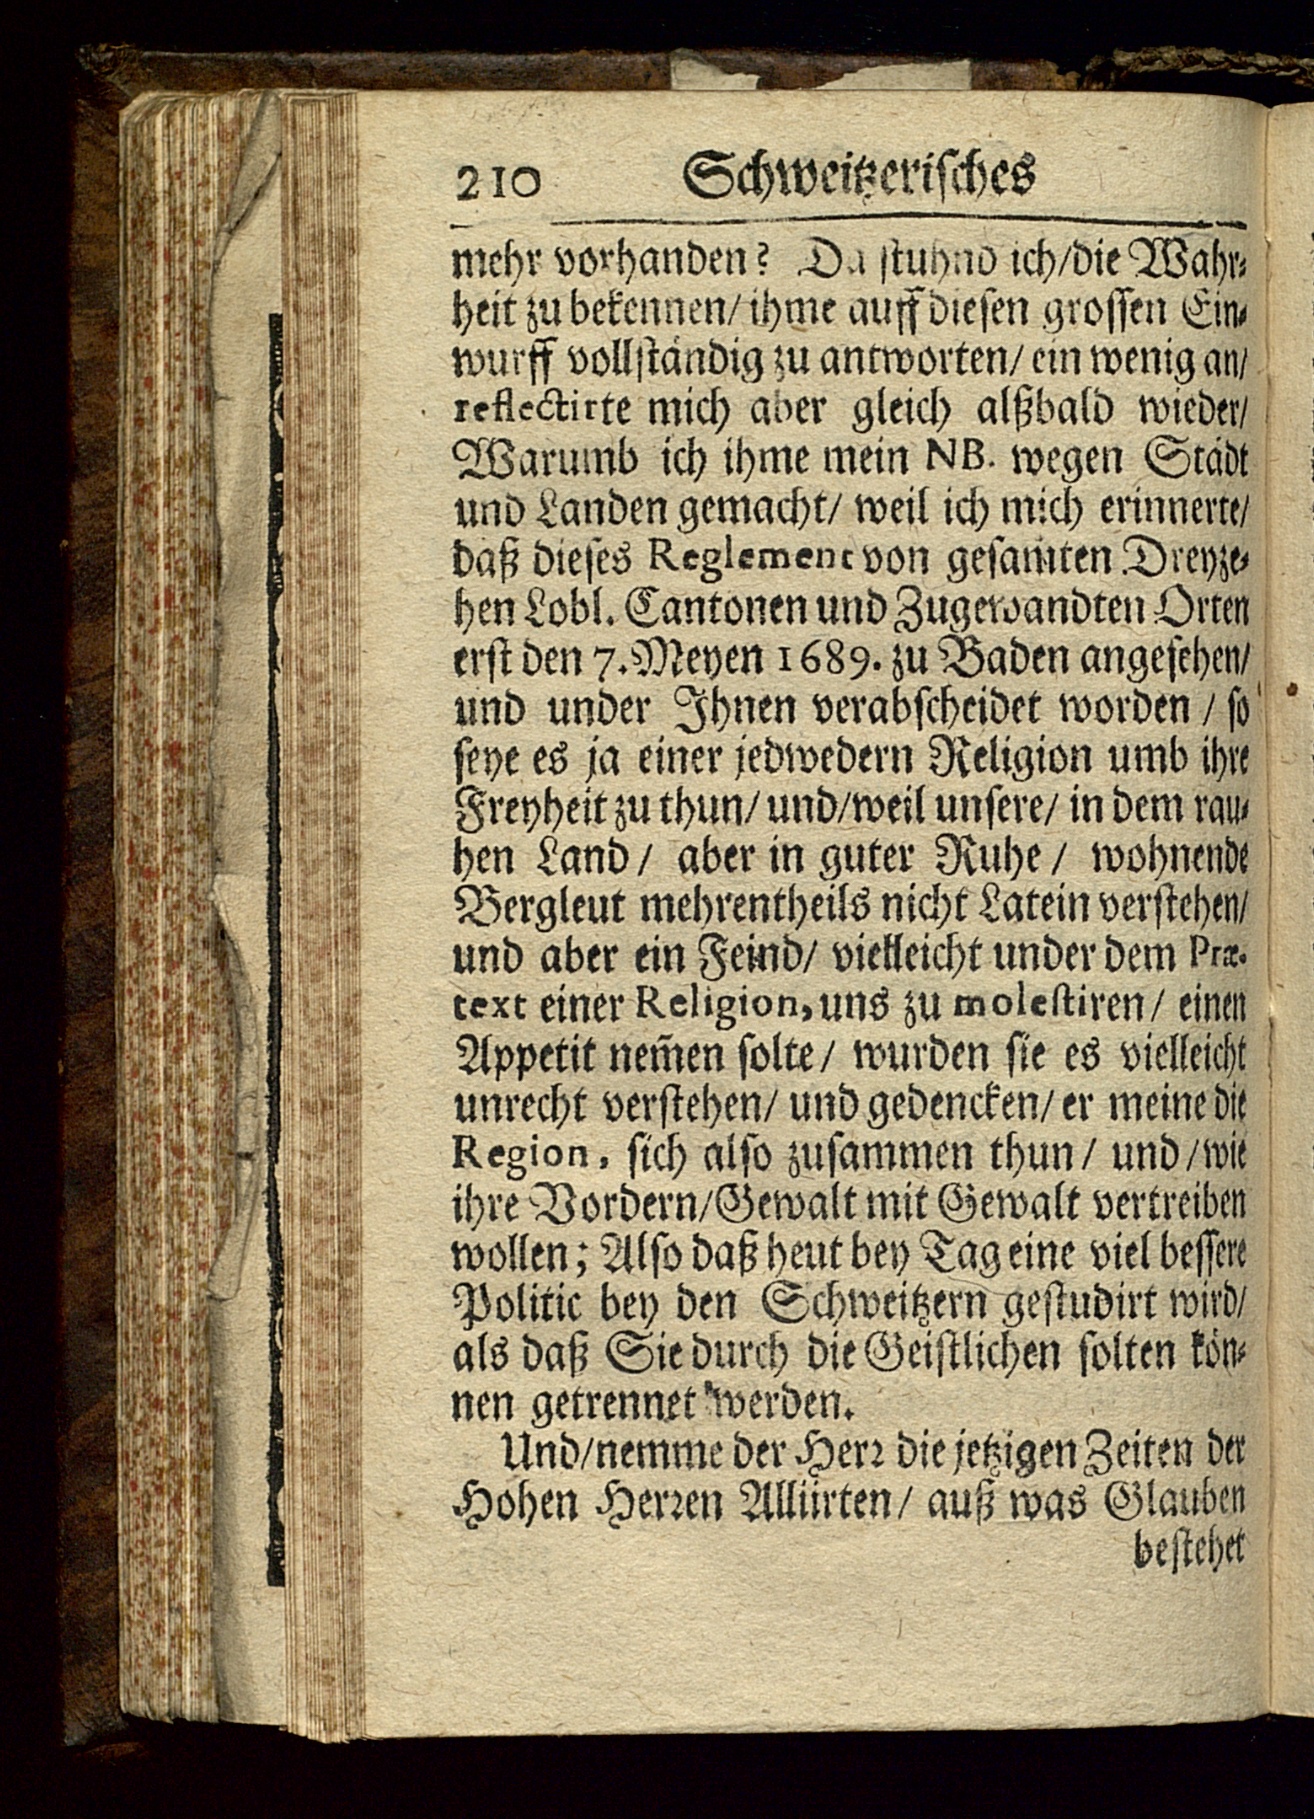 210 Schweitzerisches
mehr vorhanden? Da stuhnd ich/die Wahr-
heit zu bekennen/ ihme auff diesen grossen Ein-
wurff vollständig zu antworten/ ein wenig an/
reflectirte mich aber gleich alßbald wieder/
Warumb ich ihme mein NB. wegen Städt
und Landen gemacht/ weil ich mich erinnerte/
daß dieses Reglement von gesam̃ten Dreyze-
hen Lobl. Cantonen und Zugewandten Orten
erst den 7. Meyen 1689. zu Baden angesehen/
und under Ihnen verabscheidet worden / so
seye es ja einer jedwedern Religion umb ihre
Freyheit zu thun/ und/weil unsere/ in dem rau-
hen Land / aber in guter Ruhe / wohnende
Bergleut mehrentheils nicht Latein verstehen/
und aber ein Feind/ vielleicht under dem Præ-
text einer Religion, uns zu molestiren / einen
Appetit nem̃en solte / wurden sie es vielleicht
unrecht verstehen/ und gedencken/ er meine die
Region, sich also zusammen thun / und /wie
ihre Vordern/Gewalt mit Gewalt vertreiben
wollen; Also daß heut bey Tag eine viel bessere
Politic bey den Schweitzern gestudirt wird/
als daß Sie durch die Geistlichen solten kön-
nen getrennet werden.
Und/nemme der Herr die jetzigen Zeiten der
Hohen Herren Alliirten / auß was Glauben
bestehet